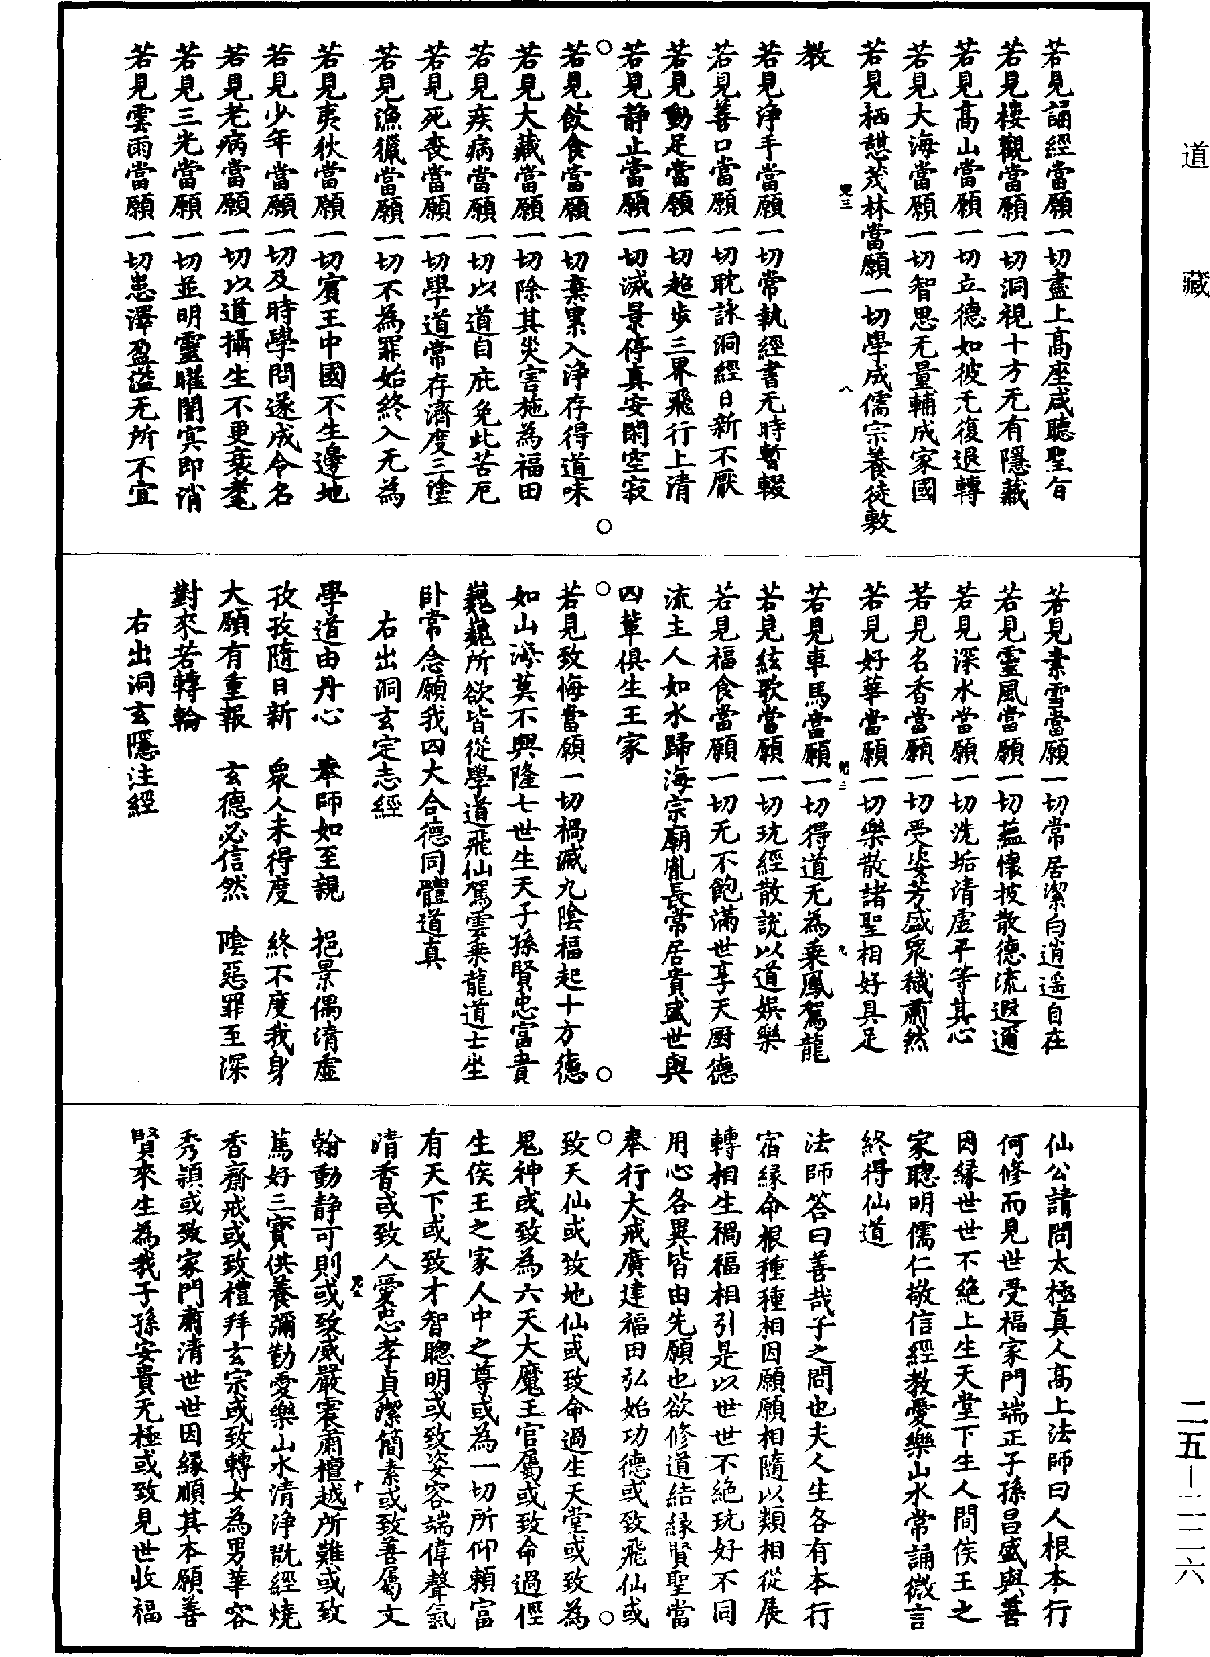 道藏
若見誦經當願一切盡上高座咸聽聖旨
若見樓觀當願一切洞視十方无有隱藏
若見高山當願一切立德如彼无復退轉
若見大海當願一切智思无量輔成家國
若見栖憩茂林當願一切學成儒宗養徒敷
教
若見淨手當願一切常執經書无時暫輟
若見善口當願一切耽詠洞經日新不厭
若見動足當願一切超步三界飛行上清
若見静止當願一切滅景停真安閑空寂
若見飲食當願一切棄累入淨存得道味
若見大藏當願一切除其災害施為福田
若見疾病當願一切以道自庇免此苦厄
若見死喪當願一切學道常存濟度三塗
若見漁獵當願一切不為罪始終入无為
若見夷狄當願一切賓王中國不生邊地
若見少年當願一切及時學問遂成令名
若見老病當願一切以道攝生不更衰耄
若見三光當願一切並明靈曜闇冥即消
若見雲雨當願一切惠澤盈溢无所不宜
若見素雪當願一切常居潔白逍遥自在
若見靈風當願一切藴懷披散德流遐邇
若見深水當願一切洗垢清虛平等其心
若見名香當願一切受姿芳盛衆穢肅然
若見好華當願一切樂散諸聖相好具足
若見車馬當願一切得道无為乘鳳駕龍
若見絃歌當願一切玩經散說以道娛樂
若見福食當願一切无不飽滿世享天厨德
流主人如水歸海宗廟胤長常居貴盛世與
四輩俱生王家
若見致悔當願一切禍滅九陰福起十方德
如山海莫不興隆七世生天子孫賢忠富貴
巍巍所欲皆從學道飛仙駕雲乘龍道士坐
卧常念願我四大合德同體道真
右出洞玄定志經
學道由丹心 奉師如至親 挹景偶清虛
孜孜隨日新 衆人未得度 終不度我身
大願有重報 玄德必信然 陰惡罪至深
對來若轉輪
右出洞玄隱注經
仙公請問太極真人高上法師曰人根本行
何修而見世受福家門端正子孫昌盛與善
因緣世世不絶上生天堂下生人間侯王之
家聰明儒仁敬信經教愛樂山水常誦微言
終得仙道
法師答曰善哉子之問也夫人生各有本行
宿緣命根種種相因願願相隨以類相從展
轉相生禍福相引是以世世不絶玩好不同
用心各異皆由先願也欲修道結緣賢聖當
奉行大戒廣建福田弘始功德或致飛仙或
致天仙或致地仙或致命過生天堂或致為
鬼神或致為六天大魔王官屬或致命過徑
生侯王之家人中之尊或為一切所仰頼富
有天下或致才智聰明或致姿容端偉聲氣
清香或致人愛忠孝貞潔簡素或致善屬文
翰動静可則或致威嚴寰肅檀越所難或致
篤好三寶供養彌勤愛樂山水清淨翫經燒
香齋戒或致禮拜玄宗或致轉女為男華容
秀頴或致家門肅清世世因緣順其本願善
賢來生為我子孫安貴无極或致見世收福
二五—一二六